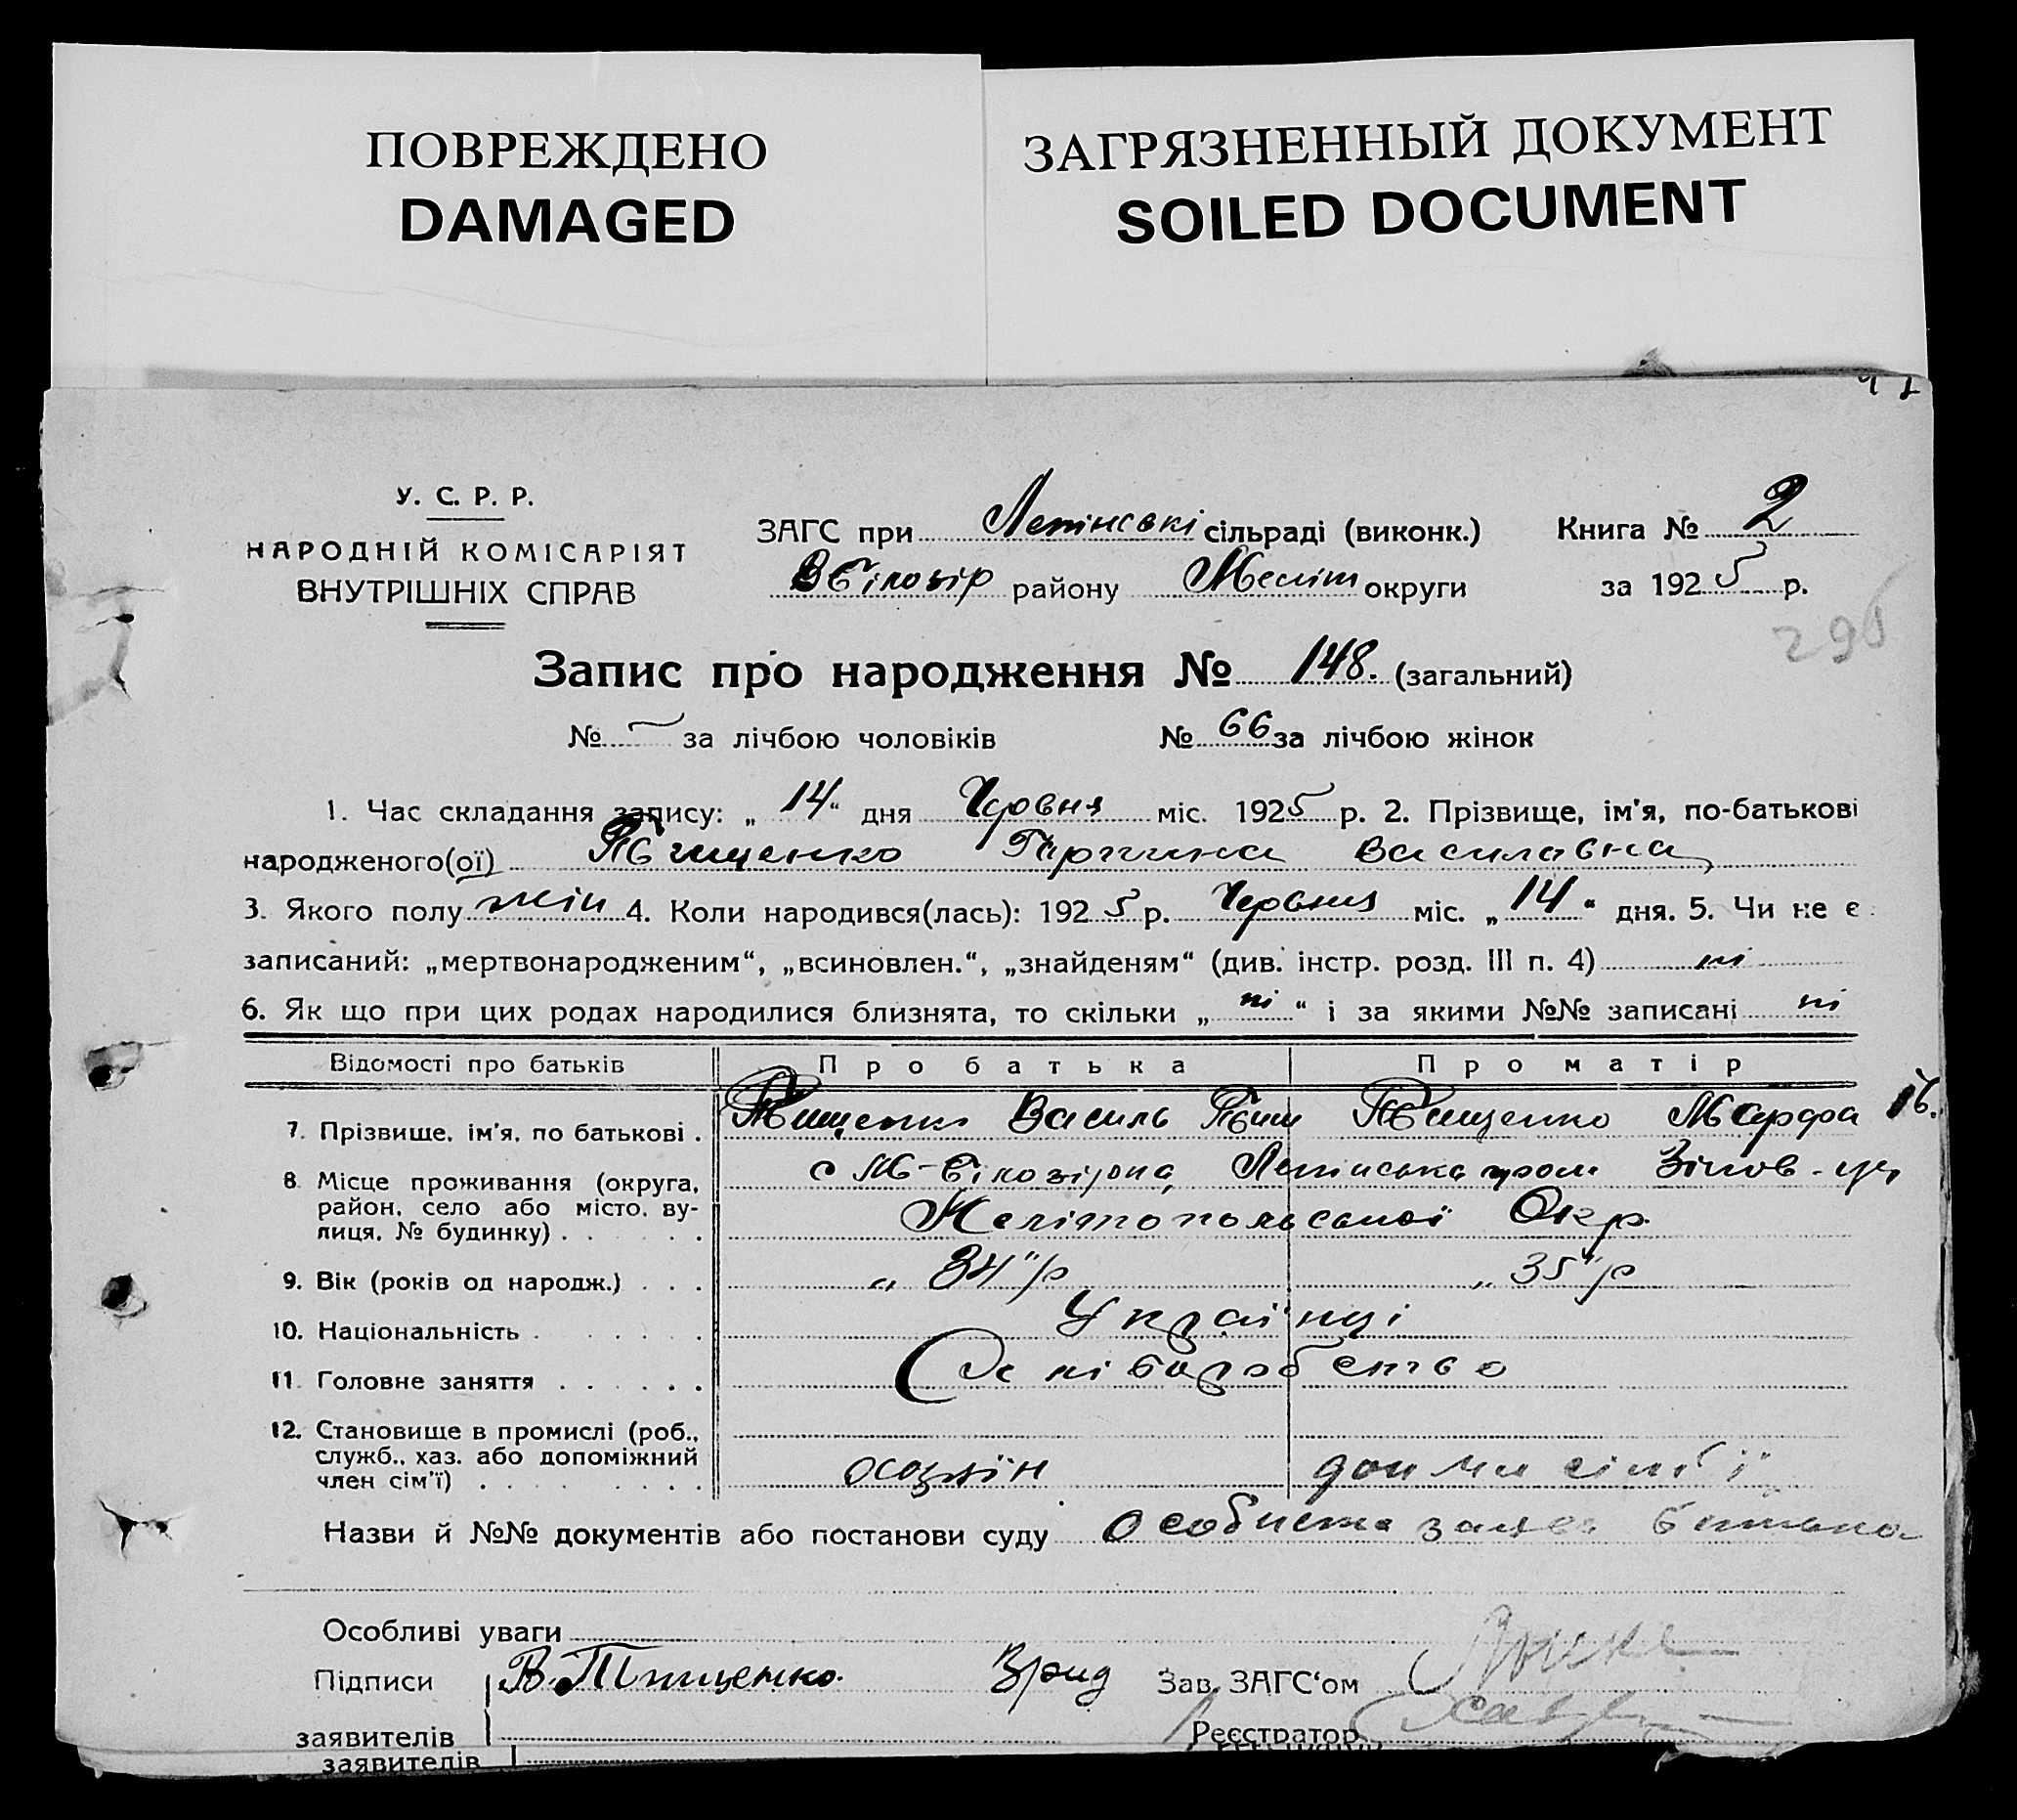 ПОВРЕЖДЕНО
DAMAGED
ЗАГРЯЗНЕННЫЙ ДОКУМЕНТ
SOILED DOCUMENT
У. С. Р. Р.
НАРОДНІЙ КОМІСАРІЯТ
ВНУТРІШНІХ СПРАВ
ЗАГС при Ленінські сільраді (виконк.) Книга № 2
В Білозір району Меліт округи за 1925 р.
296
Запис про народження № 148. (загальний)
№ — за лічбою чоловіків № 66 за лічбою жінок
1. Час складання запису: „ 14 “ дня Червня міс. 1925 р. 2. Прізвище, ім'я, по-батькові
народженого(ої) Василавна
3. Якого полу жін 4. Коли народився(лась): 1925 р. Червня міс. „ 14 “ дня. 5. Чи не є
записаний: „мертвонародженим“, „всиновлен.“, „знайденям“ (див. інстр. розд. III п. 4) ні
6. Як що при цих родах народилися близнята, то скільки „ ні “ і за якими №№ записані ні
Відомості про батьків Про батька Про матір
7. Прізвище, ім'я, по батькові . Василь Марфа
8. Місце проживання (округа, район, село або місто, вулиця, № будинку) . с М-Білозірка, Ленінська
Мелітопольської Окр.
9. Вік (років од народж.) . . . „ 34 "/р „ 35 "/р
10. Національність . Українці
11. Головне заняття . . . . . . Хліборобство
12. Становище в промислі (роб., служб., хаз. або допоміжний член сім'ї) .
Назви й №№ документів або постанови суду Особиста заява батька
Особливі уваги
Підписи В. Тищенко. Врид Зав. ЗАГС'ом
заявителів Реєстратор
заявителів